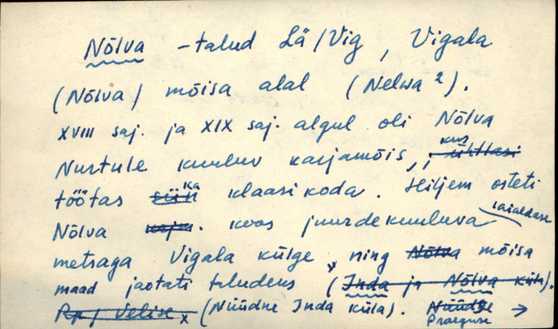 Nõlva - talud Lä/Vig, Vigala
(Nõlva) mõisa alal (Nelwa 2).
XVIII saj. ja XIX saj. algul oli Nõlva
Nurtule kuuluv karjamõis, kus ühtlasi
töötas siin ka klaasikoda. Hiljem osteti
Nõlva koos juurdekuuluva laialdase
metsaga Vigala külge, ning Nõlva mõisa
maad jaotati taludeks (Inda ja Nõlva küla).
Rp/ Velise x (Nüüdne Inda küla). Nüüdse Praeguse →